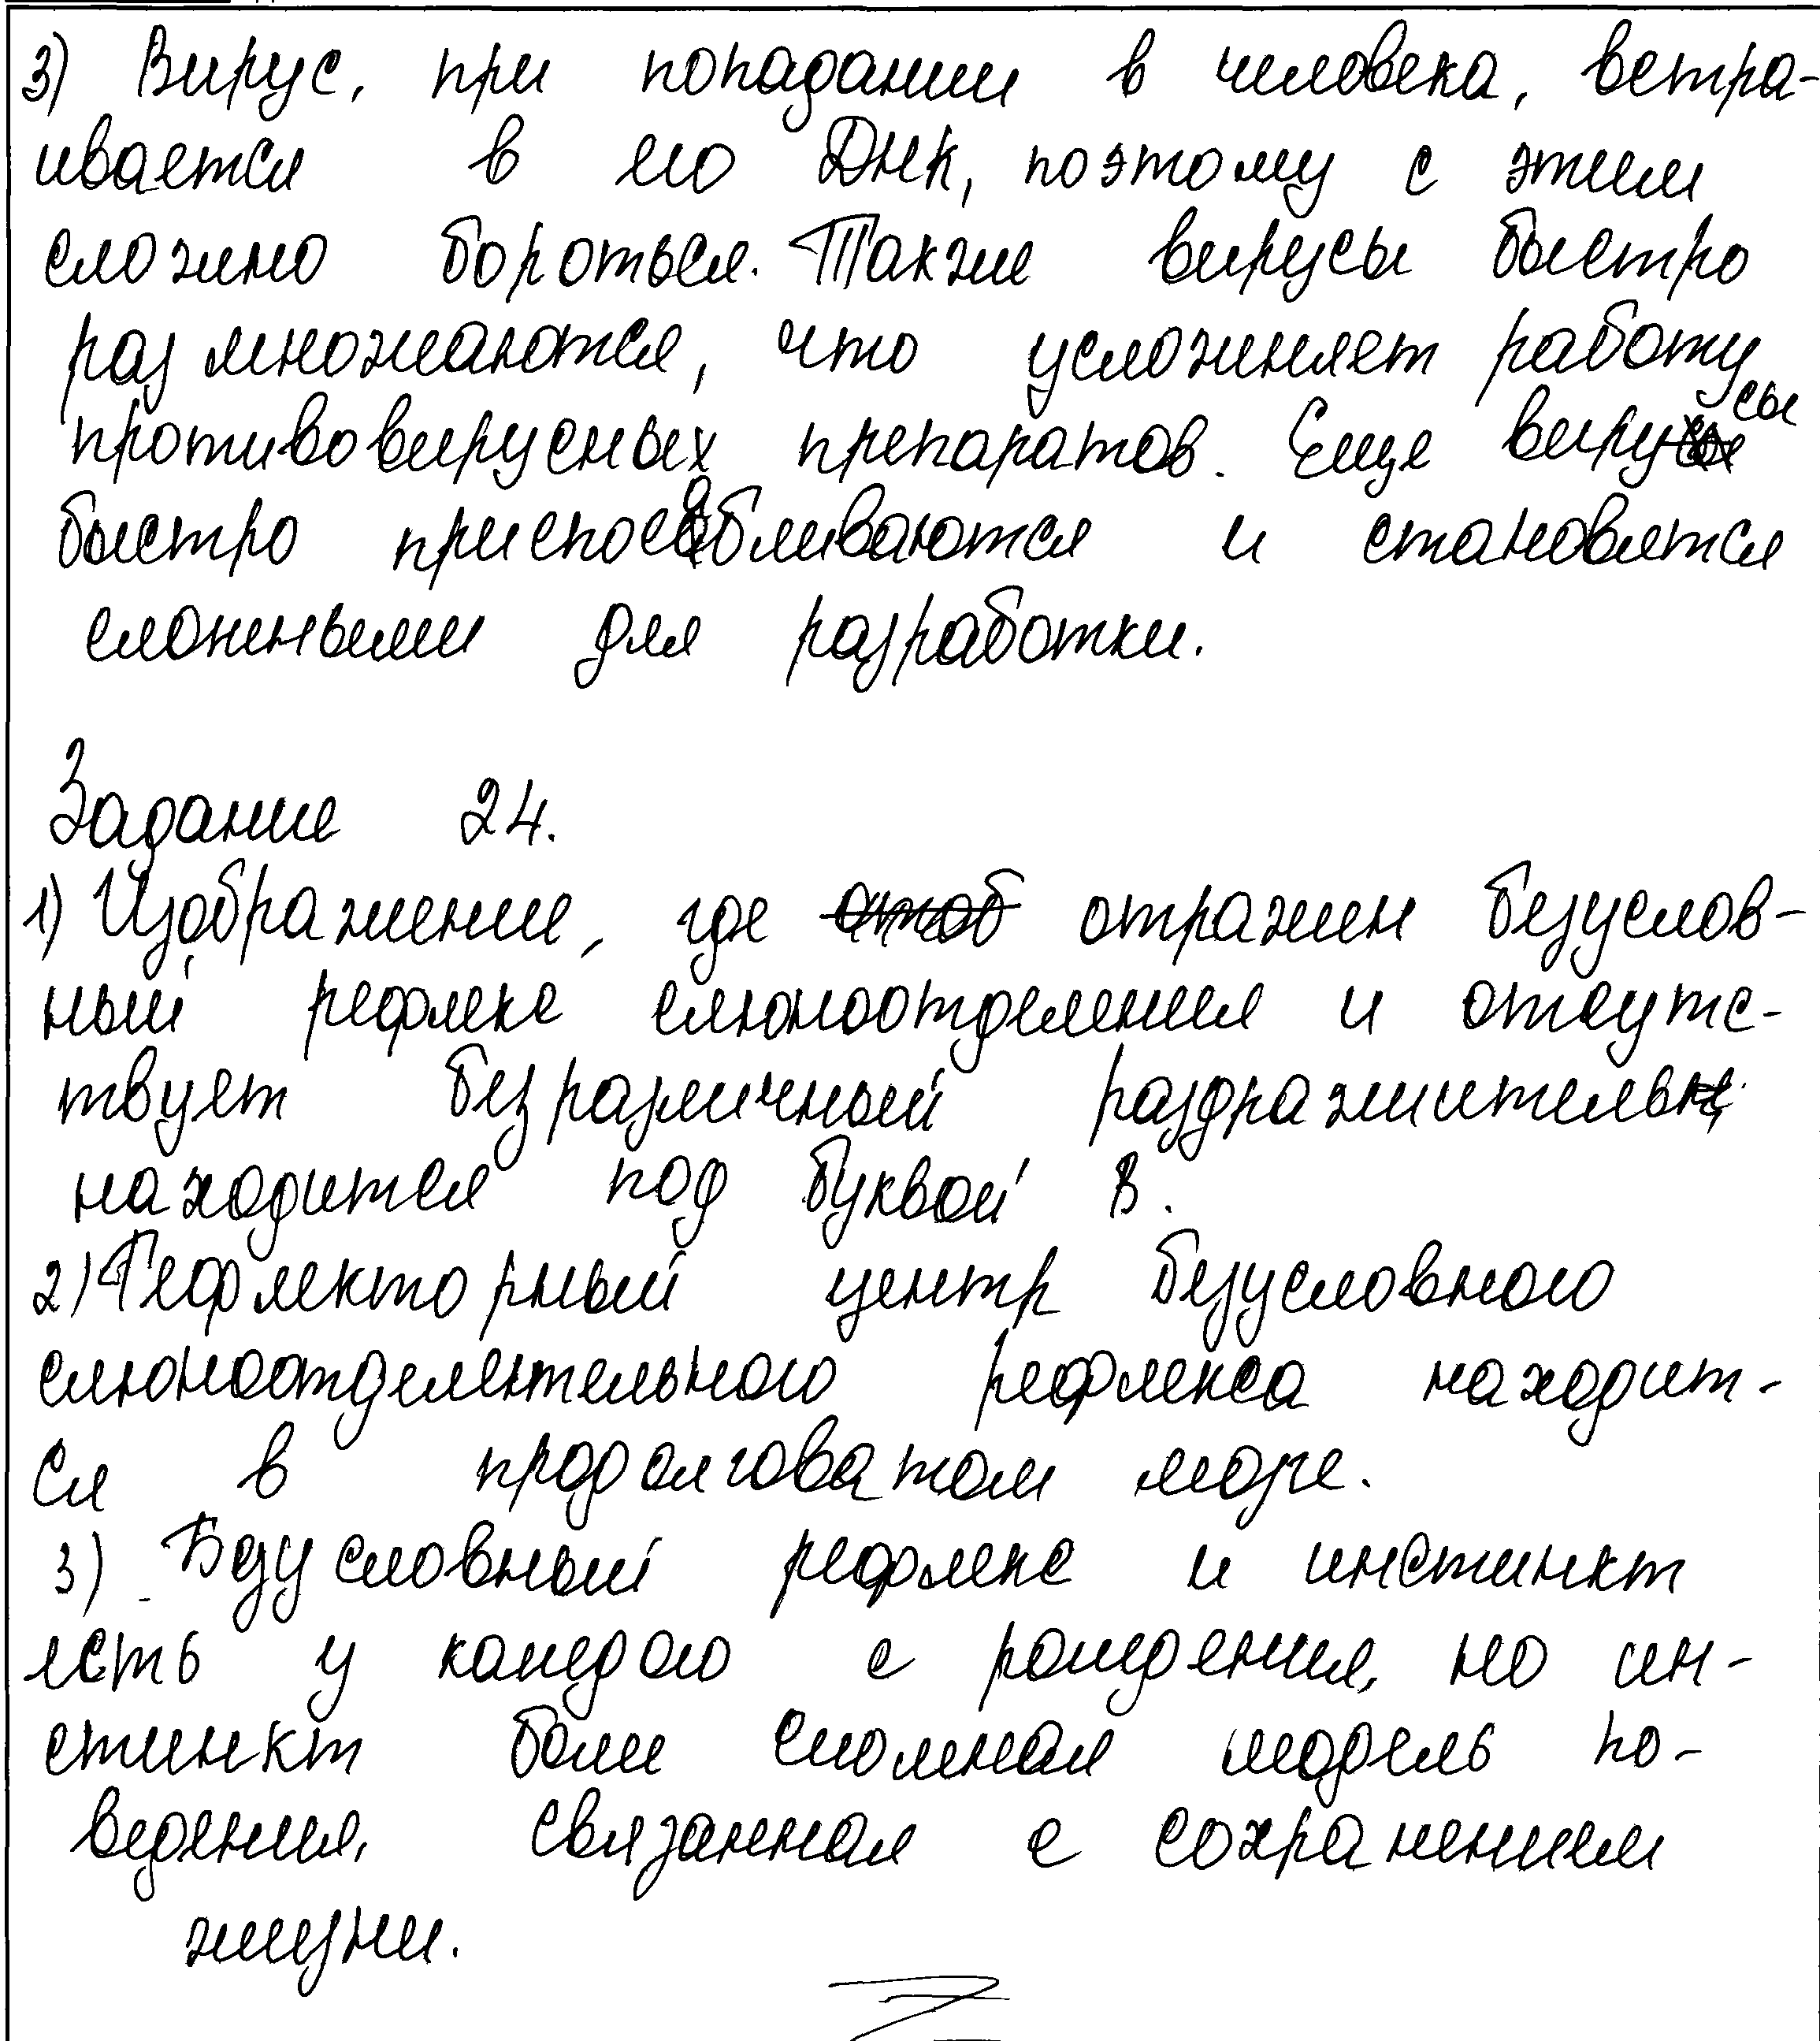 3) Вирус, при попадании в человека, встра-
ивается в его ДНК, поэтому с этим
сложно бороться. Также вирусы быстро
размножаются, что усложняет работу
противовирусных препаратов. Еще вирусы
быстро приспосабливаются и становятся
сложными для разработки.
Задание 24.
1) Изображение, где отражен безуслов-
ный рефлекс слюноотделения и отсутс-
твует безразличный раздражитель
находится под буквой В.
2) Рефлекторный центр безусловного
слюноотделительного рефлекса находит-
ся в продолговатом мозге.
3) Безусловный рефлекс и инстинкт
есть у каждого с рождения, но ин-
стинкт более сложная модель по-
ведения, связанная с сохранением
жизни.